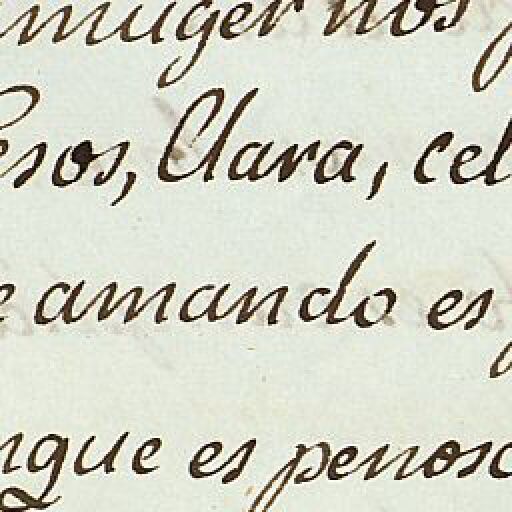 muger nos
esos, Clara, cel
e amando es
nque es penoso